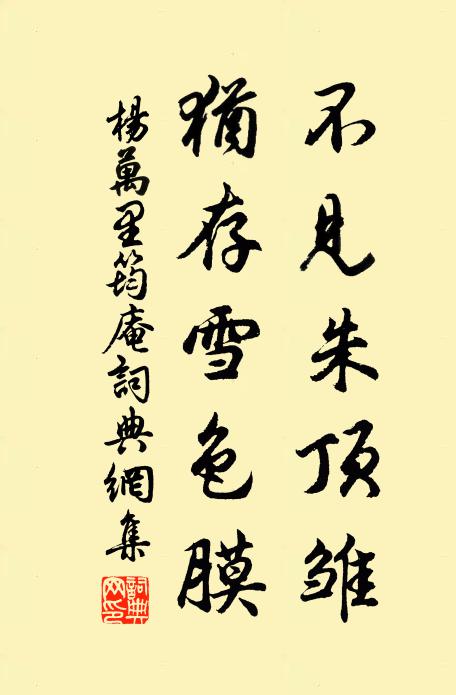 不見朱頂雛
猶存雪色膜
楊萬里筠庵詞典網集
詞典網印